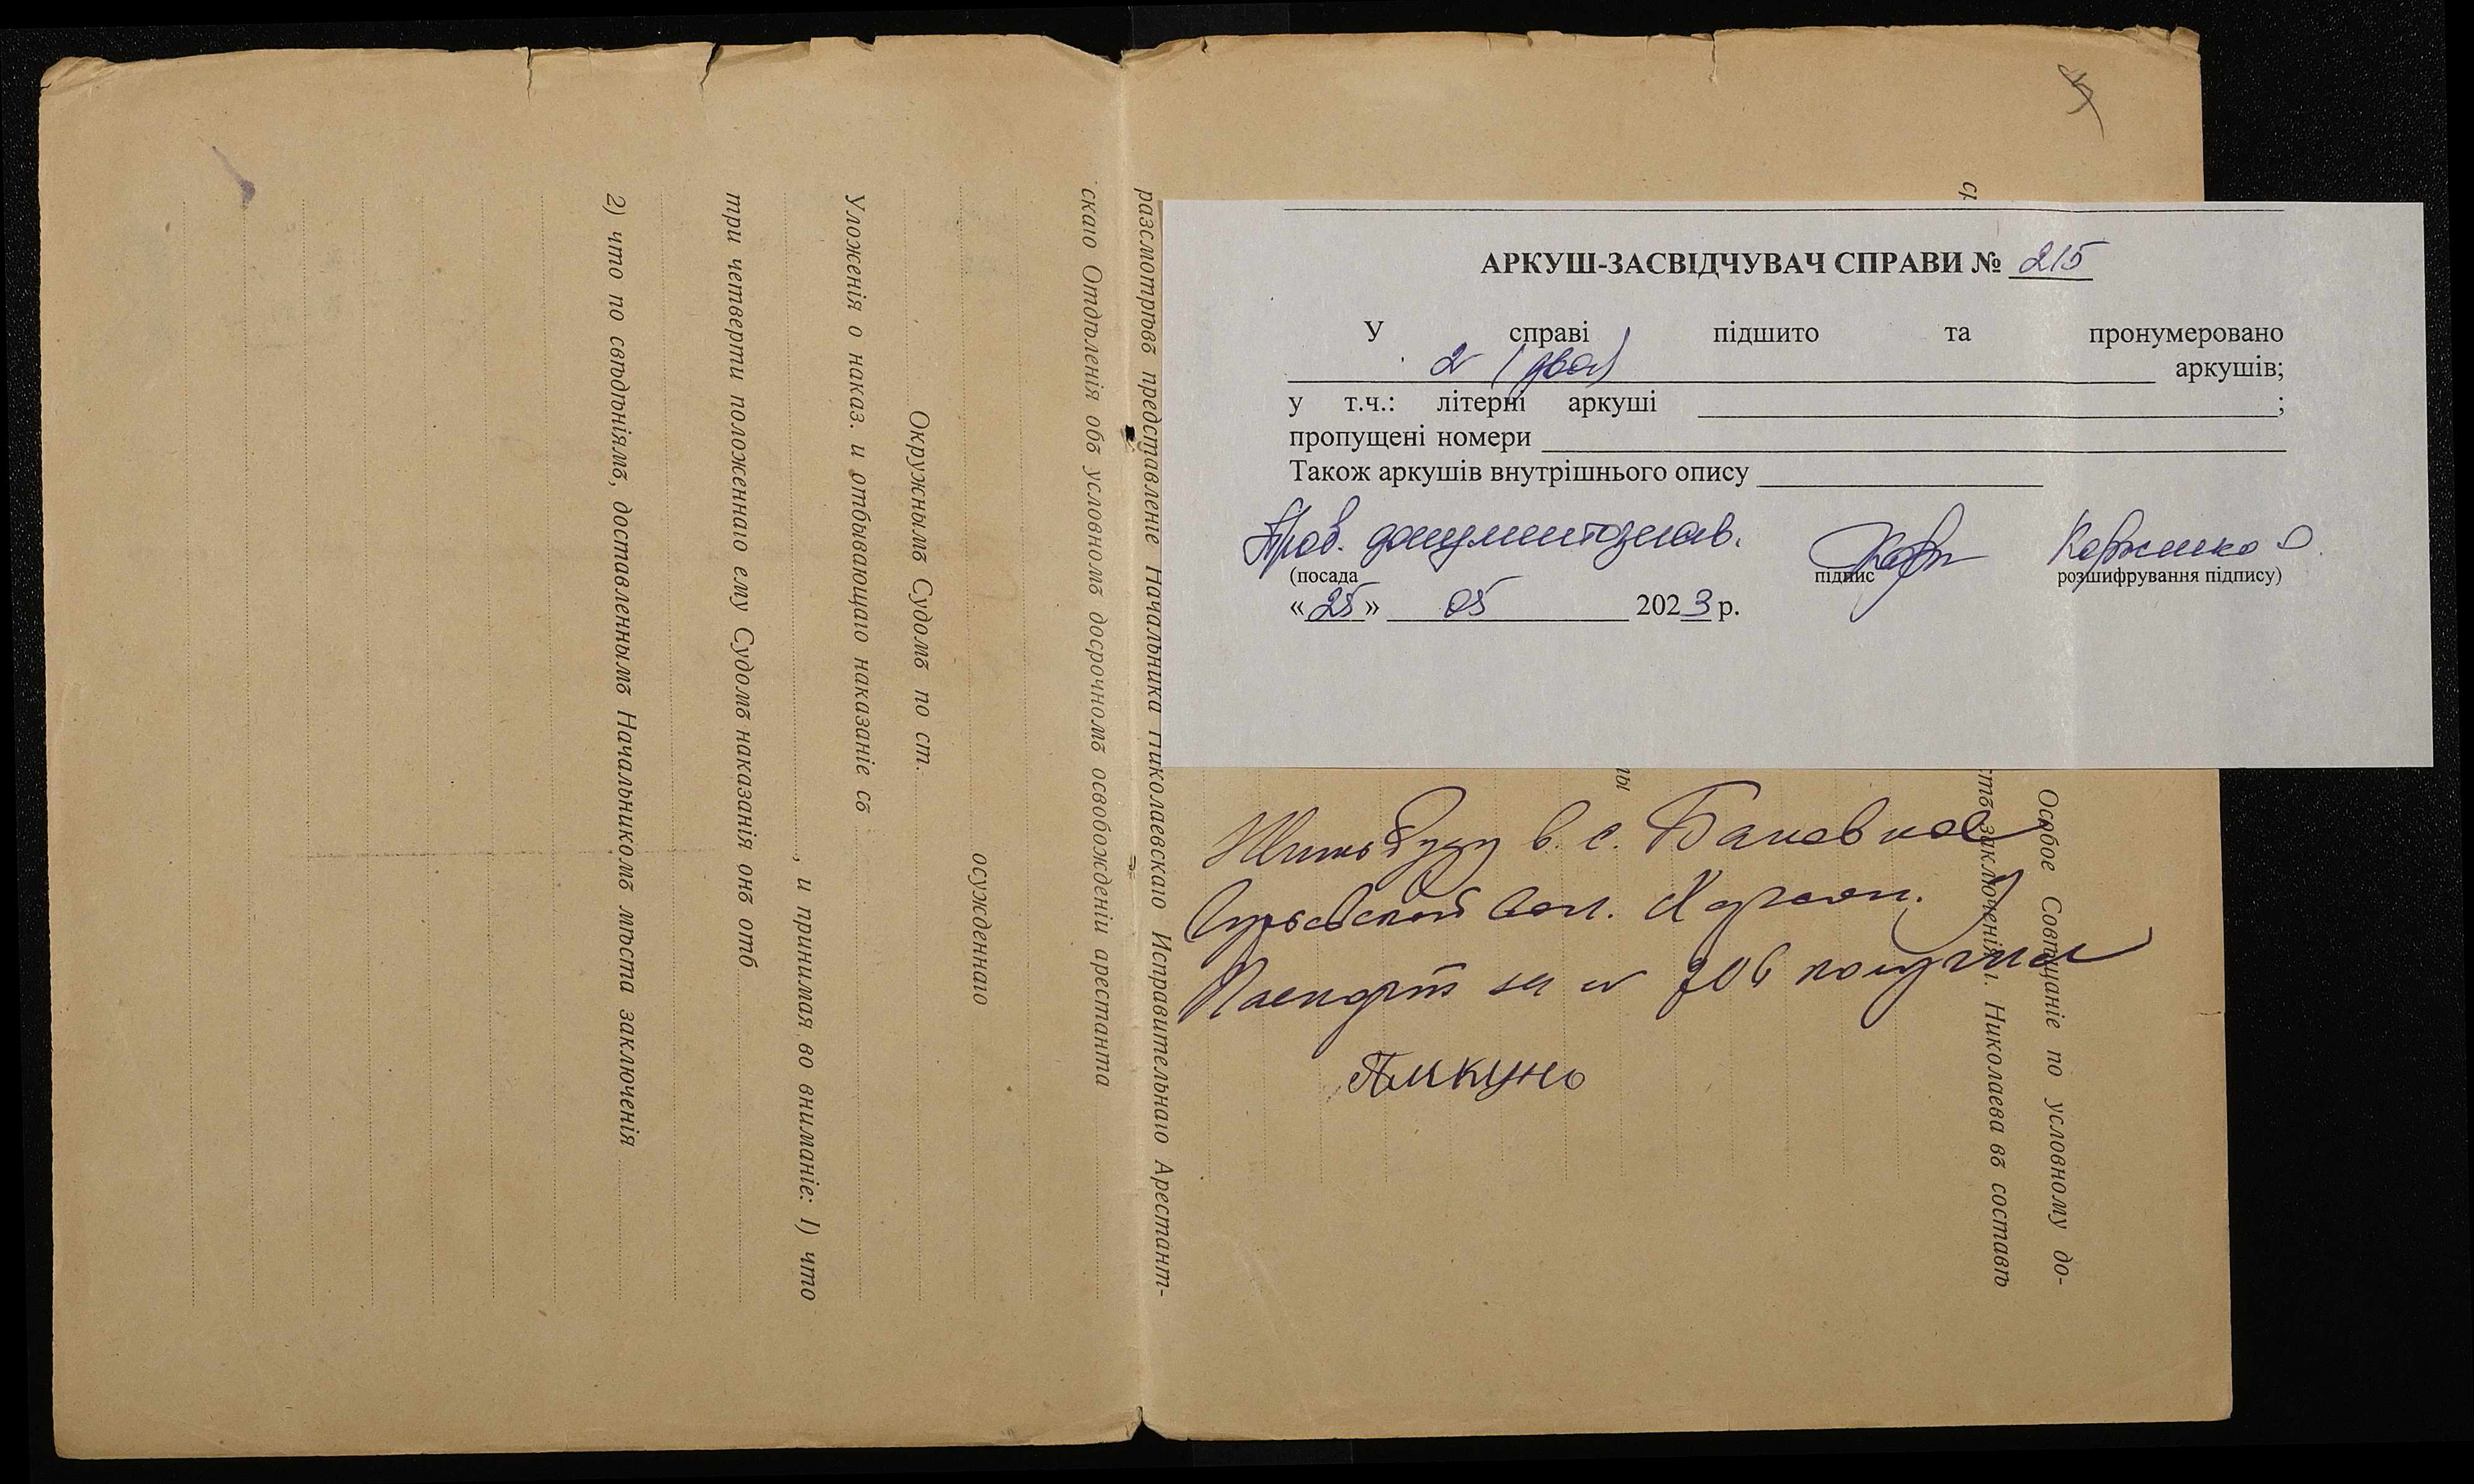 АРКУШ-ЗАСВІДЧУВАЧ СПРАВИ № 215
У справі підшито та пронумеровано
2 (два) аркушів;
у т.ч.: літерні аркуші ;
пропущені номери
Також аркушів внутрішнього опису
Пров. документознав.
(посада підпис розшифрування підпису)
«25» 05 2023 р.
Жить буду в. с.
вол. Херсон. у
Паспорт за № 206 получил
Особое Совѣщаніе по условному до-
ср
тѣ заключенія г. Николаева въ составѣ
ты
разсмотрѣвъ представленіе Начальника Николаевскаго Исправительнаго Арестант-
скаго Отдѣленія объ условномъ досрочномъ освобожденіи арестанта
осужденнаго
Окружнымъ Судомъ по ст.
Уложенія о наказ. и отбывающаго наказаніе съ
, и принимая во вниманіе: 1) что
три четверти положеннаго ему Судомъ наказанія онъ отб
2) что по свѣдѣніямъ, доставленнымъ Начальникомъ мѣста заключенія